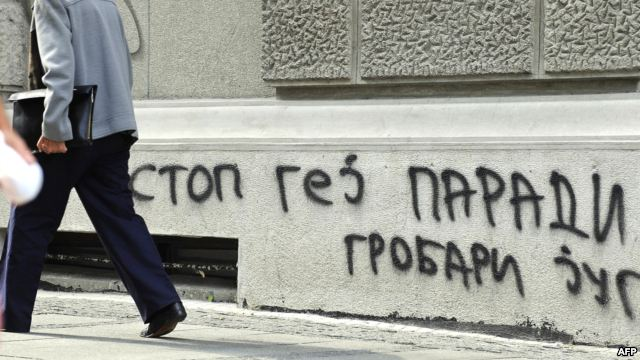 стоп геј паради
гробари југ
AFP